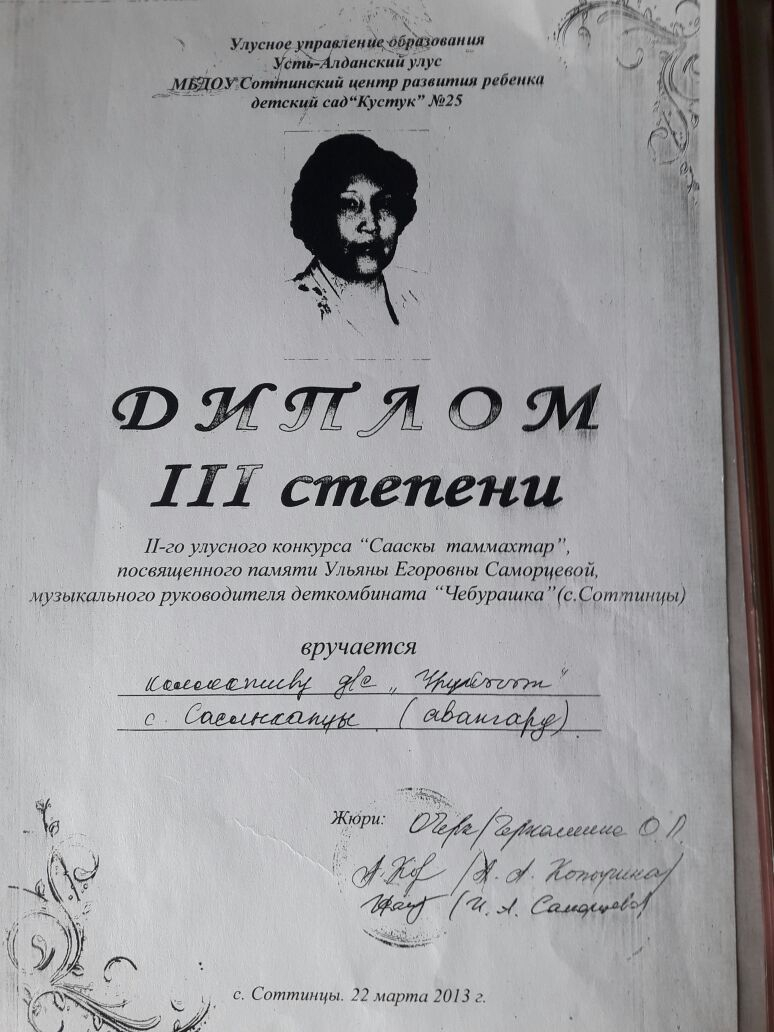 Улусное управление образования
Усть-Алданский улус
МБДОУ Соттинский центр развития ребенка
детский сад“Кустук” №25
ДИПЛОМ
III степени
II-го улусного конкурса “Сааскы таммахтар”,
посвященного памяти Ульяны Егоровны Саморцевой,
музыкального руководителя деткомбината “Чебурашка”(с.Соттинцы)
вручается
коллективу д/с
с. Сасылканцы (авангард)
Жюри:
О.П.
(А. А.
(И. А. Саморцева)
с. Соттинцы. 22 марта 2013 г.